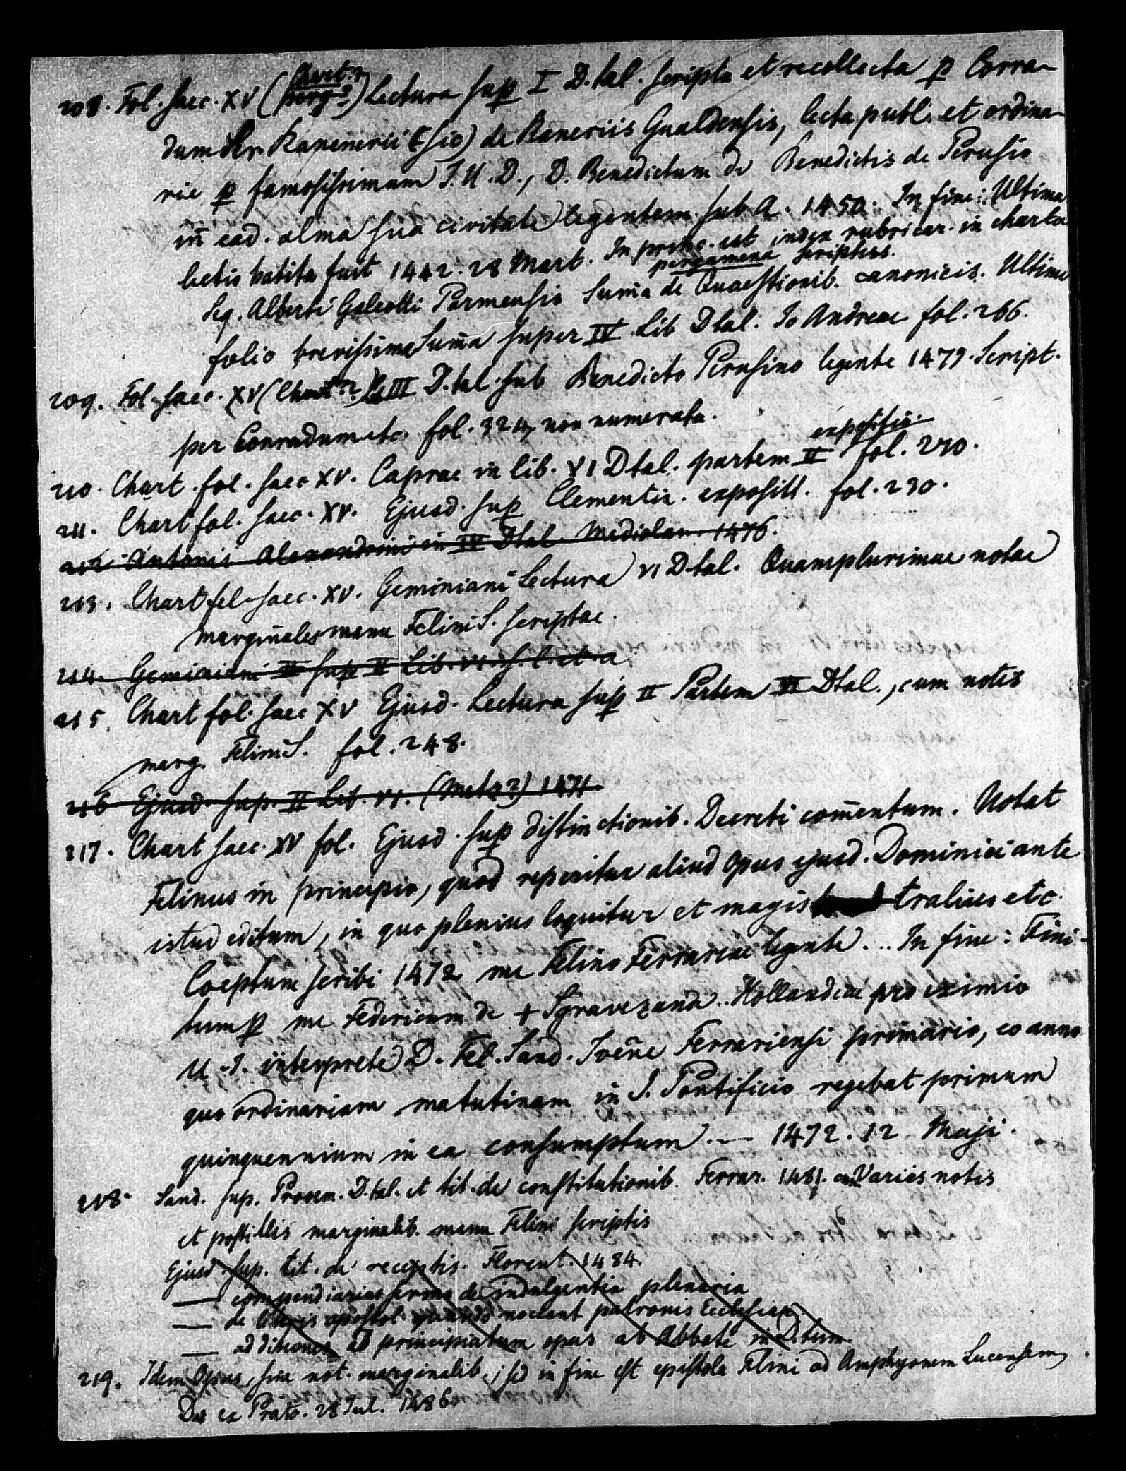 208. Fol. saec. XV (Chart.? perg.?) Lectura sup I Dtal. scripta et recollecta p Corra-
dum Ser Ranenerii (sic) de Raneriis Gualdensis, lecta publ. et ordina-
rie p famosissimum I. U. D., D. Benedictum de Benedictis de Perusio
in ead. alma sua civitate legentem sub A. 1450. In fine: Ultima
lectio batita fuit 1442. 28 Mart. In princ. est index rubricar. in charta
pergamena scriptus.
Seq. Alberti Galeotti Parmensis Suma de Quaestionib. canonicis. Ultimo
folio brevissima Suma super IV Lib Dtal. Io Andreae fol. 266.
209. Fol. saec. XV (Chart.?) In III Dtal. sub Benedicto Perusino legente 1479. Script.
per Conradum etc. fol. 324 non numerata.
210. Chart. fol. saec XV. Caprae in lib. VI Dtal. partem II expositio. fol. 270.
211. Chart fol. saec. XV. Ejusd. sup Clementin. exposit. fol. 230.
212 Antonii Alexandrini in IV Dtal. Mediolan. 1476.
213. Chart fol. saec. XV. Geminiani Lectura VI Dtal. Quamplurimae notae
marginales manu Felini S. scriptae.
214. Geminiani sup II Lib. VI. s. l. et a
215. Chart fol. saec XV Ejusd. Lectura sup II Partem VI Dtal., cum notis
marg. Felini S. fol. 248.
216 Ejusd. sup. II Lib. VI. (Metz?) 1471
217. Chart saec. XV fol. Ejusd. sup distinctionib. Decreti comentum. Notat
Felinus in principio, quod reperitur aliud opus ejusd. Dominici ante
istud editum, in quo plenius loquitur et magistralius etc.
Coeptum scribi 1472 me Felino Ferrariae legente... In fine: Fini-
tum p me Federicum de + Sgravezana. Hollandiae pro eximio
U. I. interprete D. Fel. Sand. Ioene Ferrariensi primario, eo anno
quo ordinariam matutinam in I. Pontificio regebat primum
quinquennium in ea consumptum. — 1472. 12 Maji.
218 Sand. sup. Prooem. Dtal. et tit. de constitutionib. Ferrar. 1481. cu Variis notis
et postillis marginalib. manu Felini scriptis
Ejusd. sup. tit. de receptis. Florent. 1484.
— compendiarius sermo de indulgentia plenaria
— de literis apostol. quando noceant patronis Ecclesiar.
— additiones ad principiatum opus ab Abbate inditum
219. Idem opus, sine not. marginalib., sed in fine est epistola Felini ad Amphyonem Lucensem
Dat ex Prato. 28 Iul. 1486.